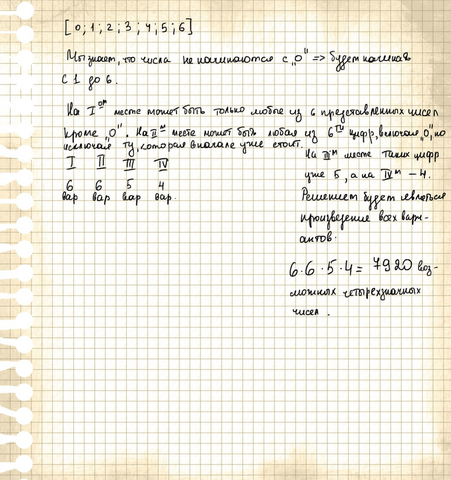 [ 0; 1; 2; 3; 4; 5; 6]
Мы знаем, что числа не начинаются с „0" => будет начинав
с 1 до 6.
На I ом месте может быть только любое из 6 представленных чисел
кроме „0". На II ом месте может быть любая из 6 ти цифр, включая „0", но
исключая ту, которая вначале уже стоит.
I II III IV
6 6 5 4
вар вар вар вар.
На III м месте таких цифр
уже 5, а на IV м – 4.
Решением будет являться
произведение всех вари-
антов.
6·6·5·4 = 7920 воз-
можных четырехзначных
чисел.